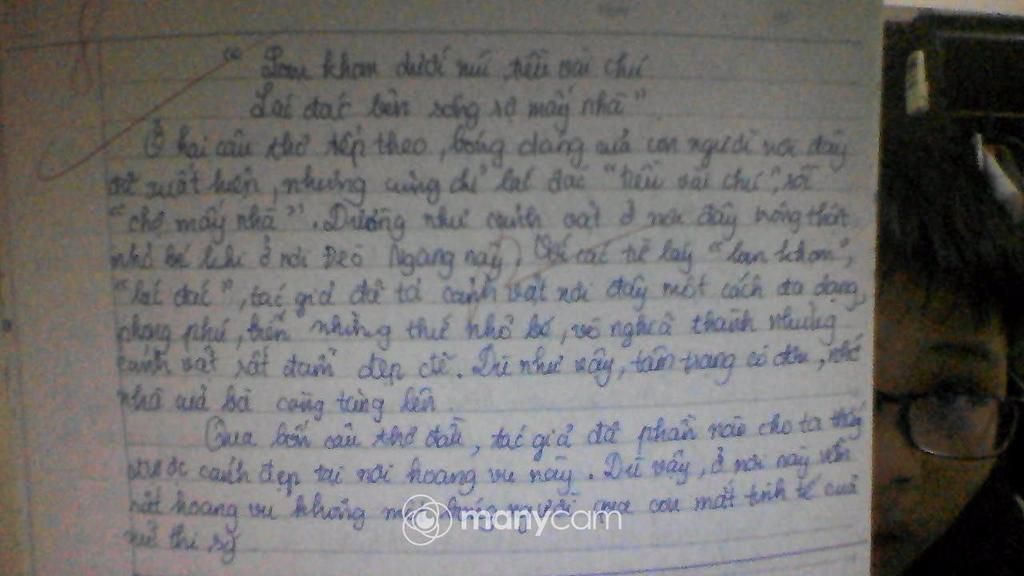 “ Lom khom dưới núi, tiều vài chú
Lác đác bên sông, rợ mấy nhà”
Ở hai câu thơ tiếp theo, bóng dáng của con người nơi đây
xuất hiện, nhưng cũng chỉ lác đác “tiều vài chú”, rồi
“chợ mấy nhà”. Dường như cảnh vật ở nơi đây trông thật
nhỏ bé khi ở nơi Đèo Ngang này. Với các từ láy “lom khom”,
“lác đác”, tác giả đã tả cảnh vật nơi đây một cách đa dạng,
phong phú, biến những thứ nhỏ bé, vô nghĩa thành những
cảnh vật rất đẹp đẽ. Dù như vậy, tâm trạng cô đơn, nhớ
nhà của bà càng tăng lên.
Qua bốn câu thơ đầu, tác giả đã phần nào cho ta thấy
được cảnh đẹp tại nơi hoang vu này. Dù vậy, ở nơi này vẫn
rất hoang vu không bóng người qua con mắt tinh tế của
nữ thi sĩ
manycam